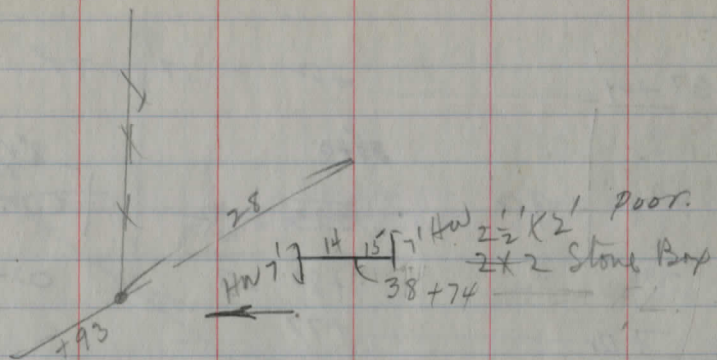 28
HW 7' 14 15 7' HW 2½' x 2' Poor.
2 x 2 Stone Box
38 + 74
+93